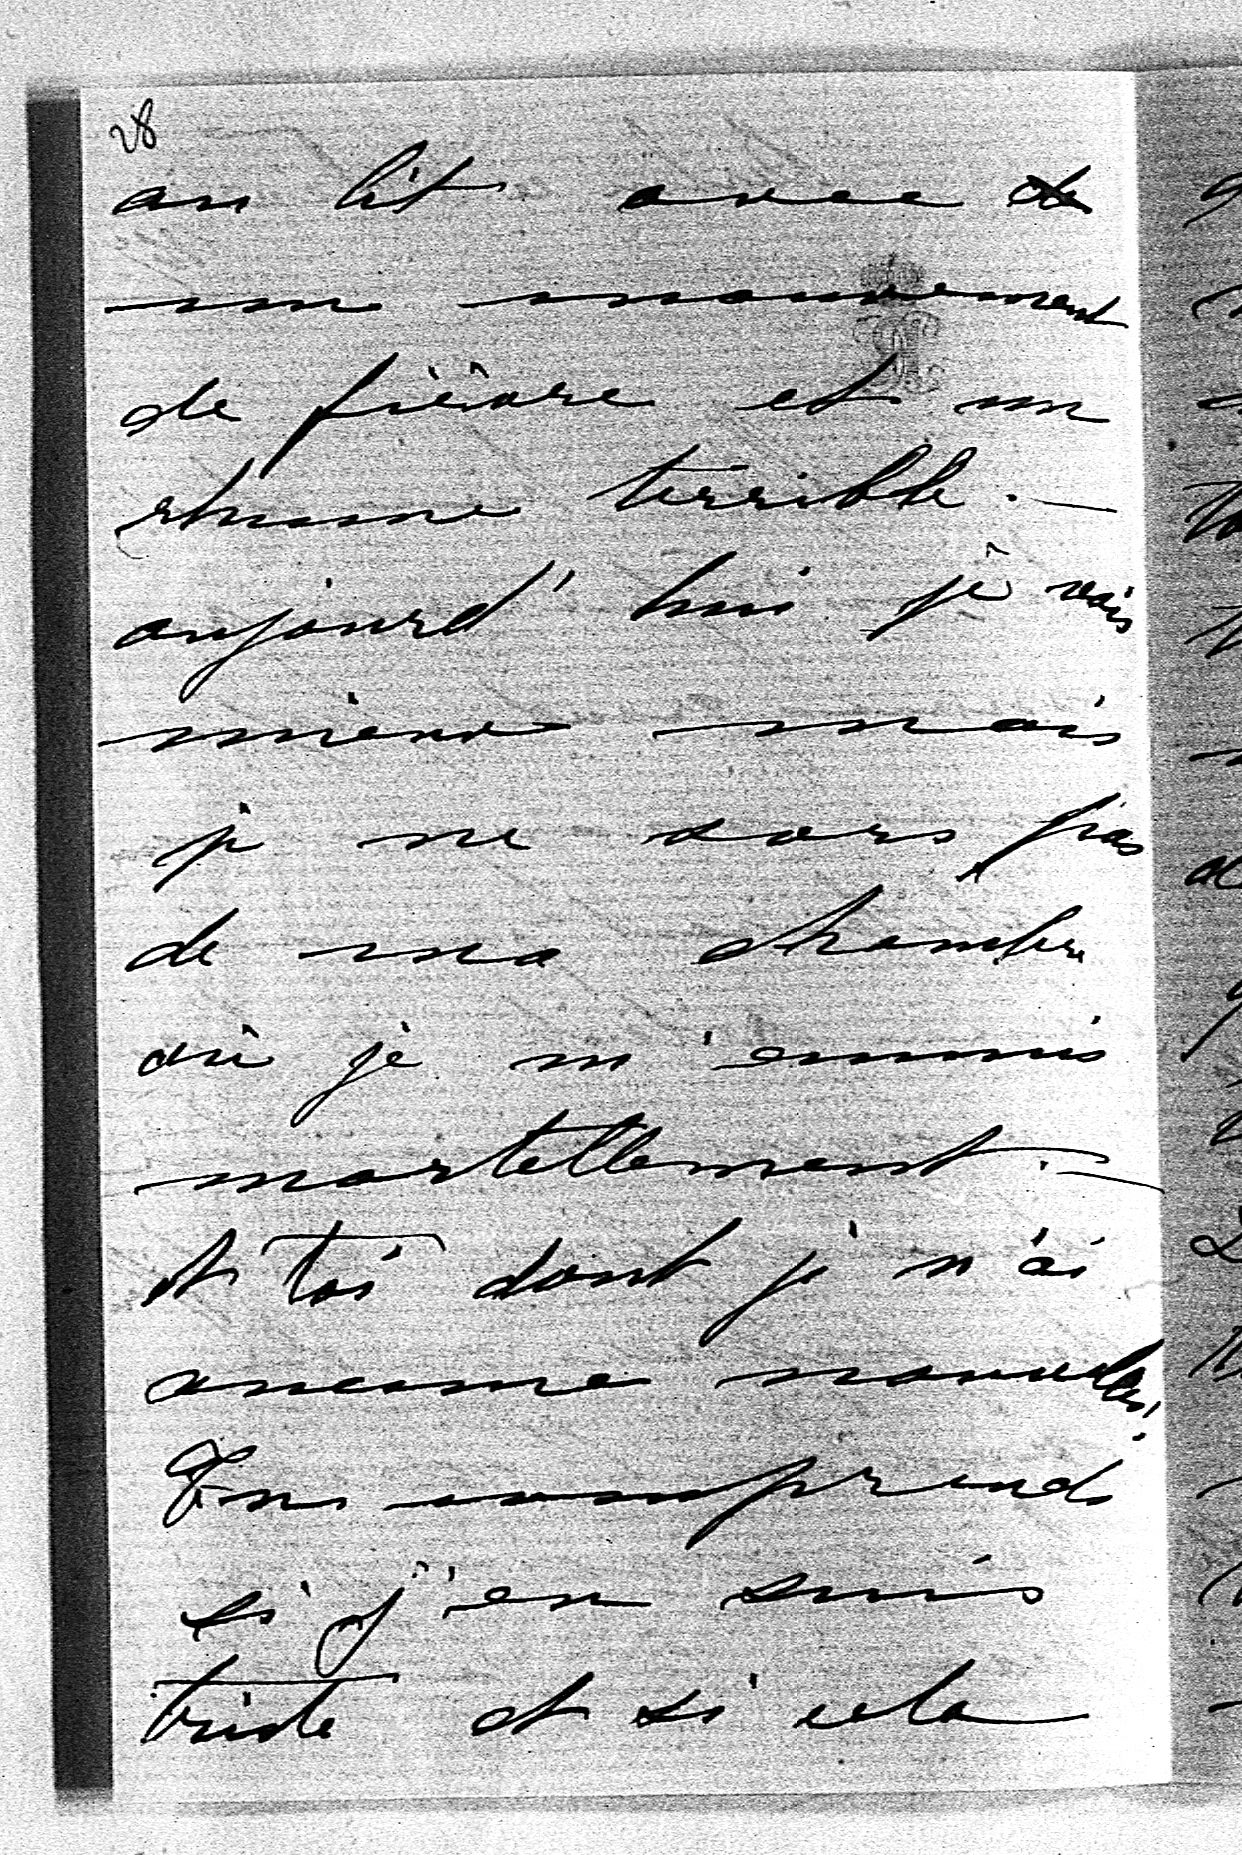 28
au lit avec de
un mouvement
de fièvre et un
rhume terrible. —
aujourd'hui je vais
mieux mais
je ne sors pas
de ma chambre
où je m'ennuis
mortellement. —
et toi dont je n'ai
aucune nouvelles!
Tu comprends
si j'en suis
triste et si cela